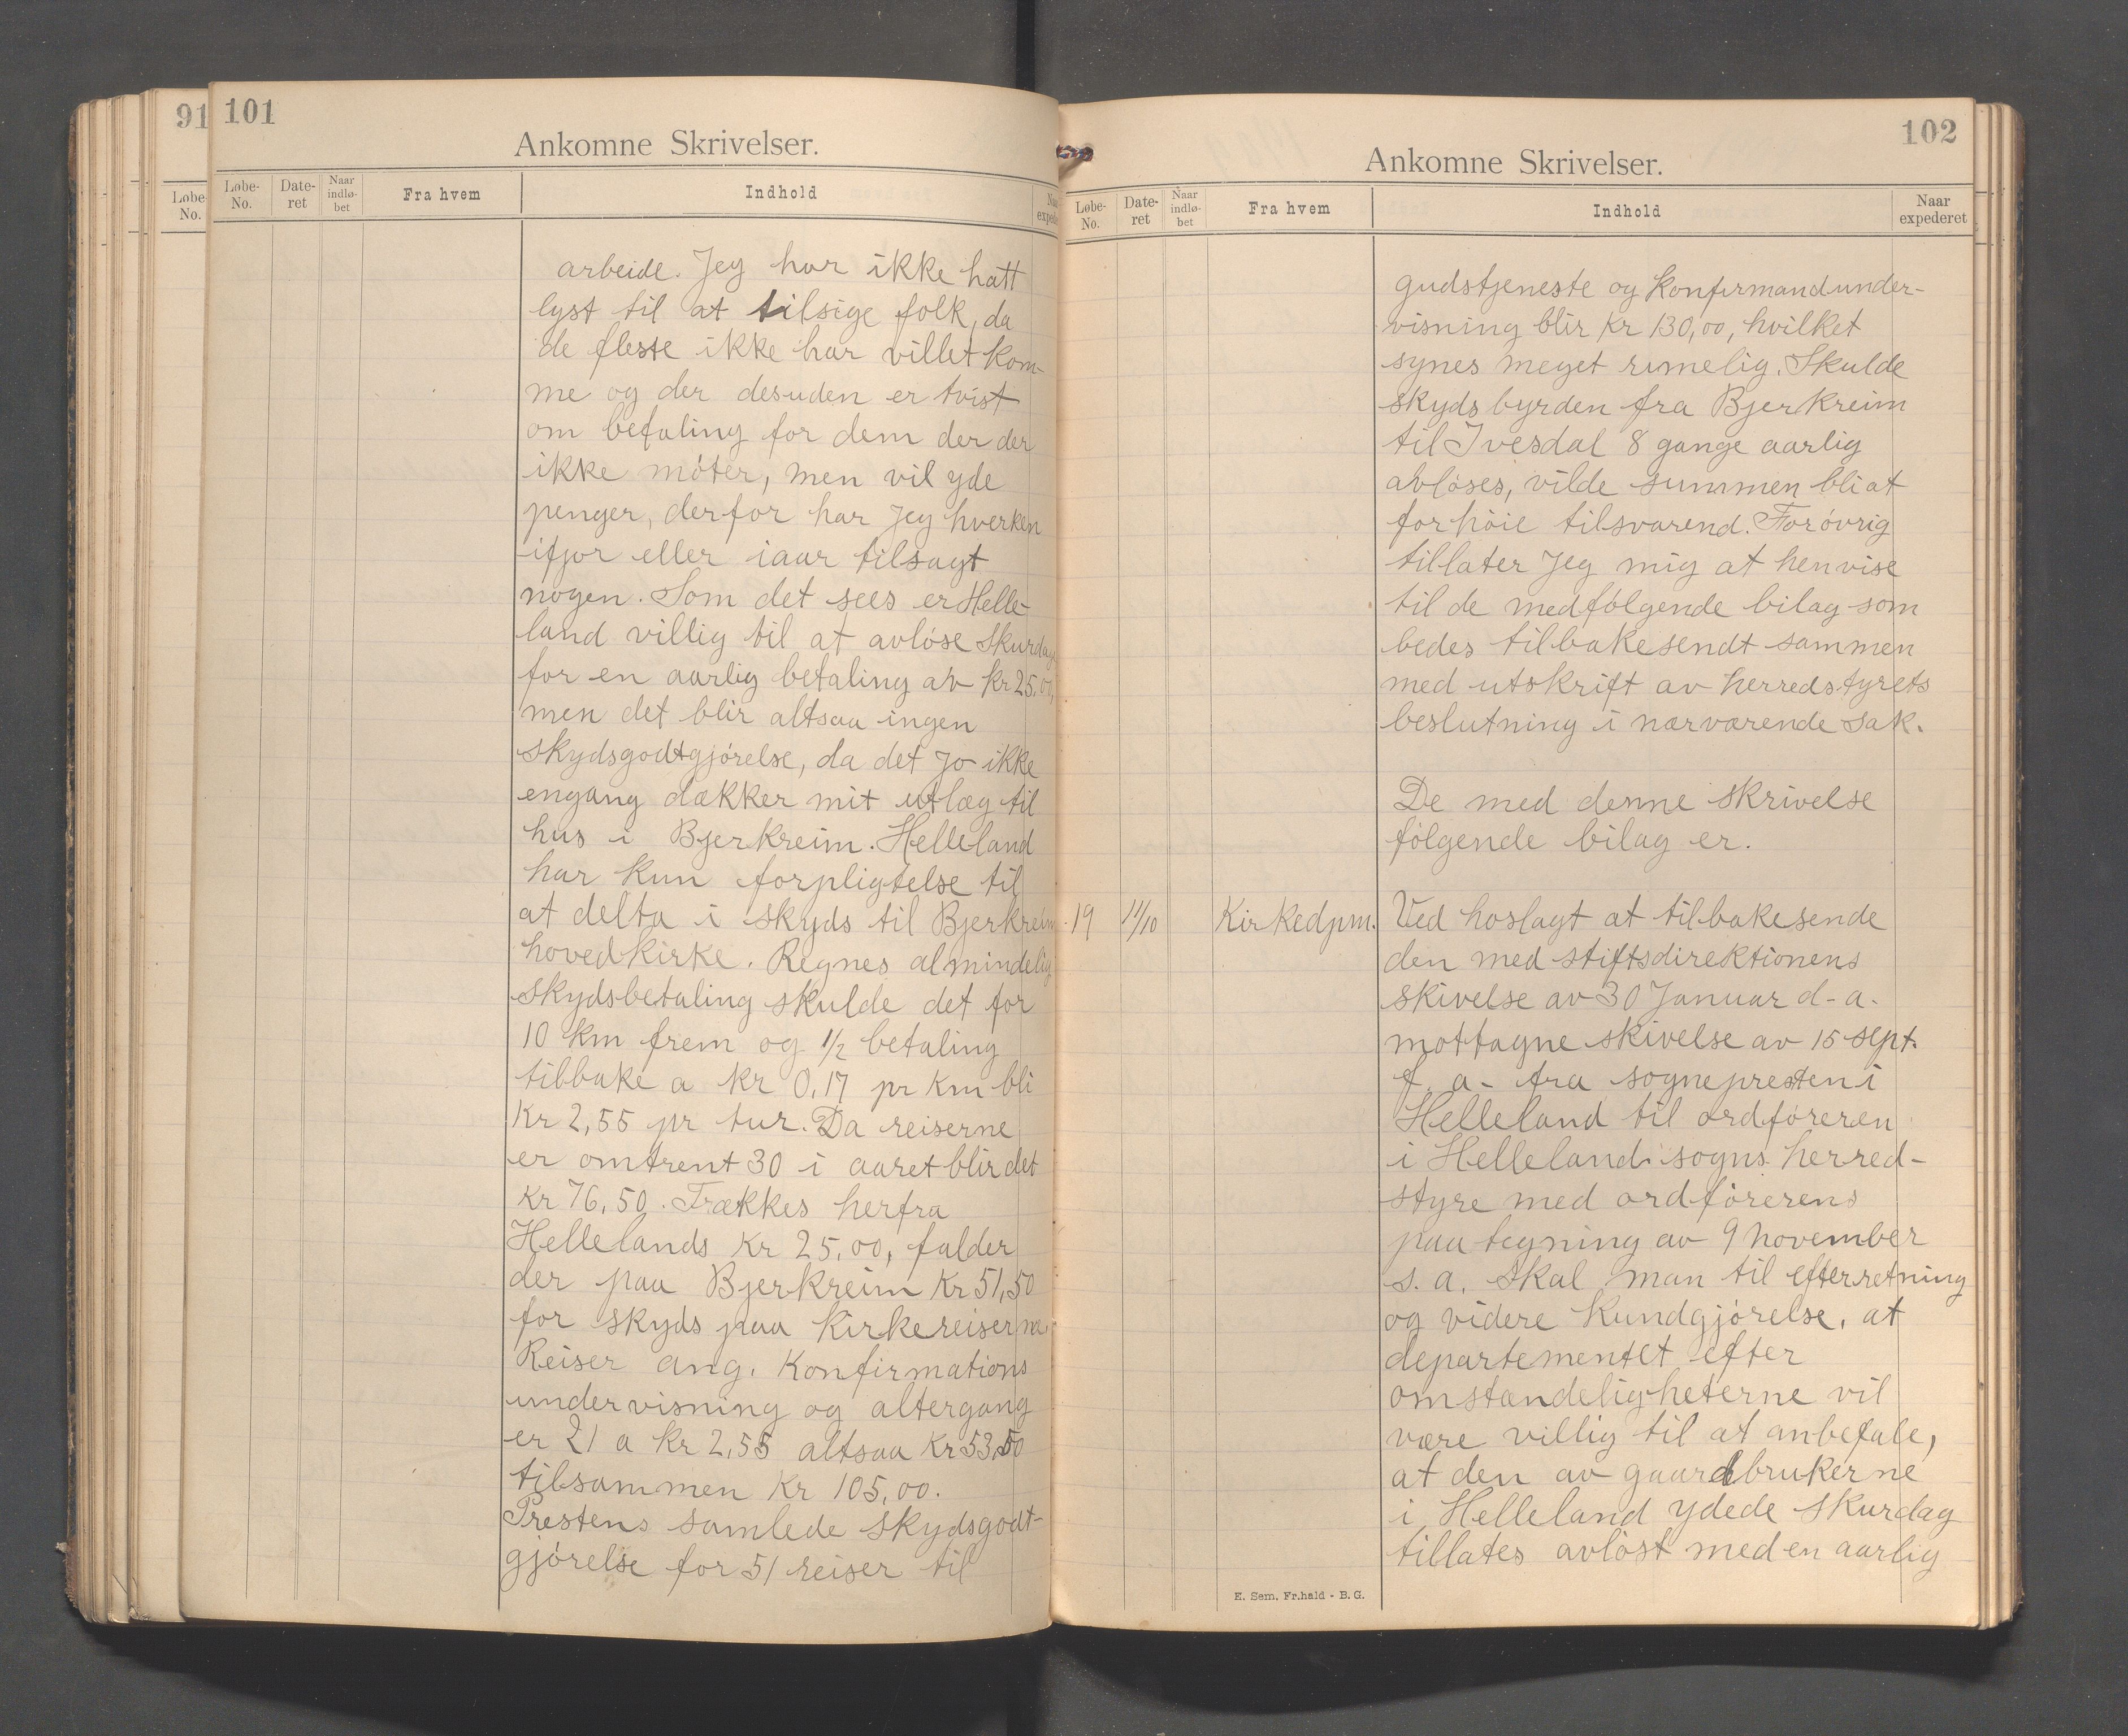 91
Løbe-
No.
101
Ankomne Skrivelser.
Løbe-
No.
Date-
ret
Naar
indlø-
bet
Fra hvem
Indhold
arbeide. Jeg har ikke hatt
lyst til at tilsige folk, da
de fleste ikke har villet kom-
me og der desuden er tvist
om befaling for dem der der
ikke møter, men vil yde
penger, derfor har Jeg hverken
ifjor eller iaar tilsagt
nogen. Som det sees er Helle-
land villig til at avløse Skurdag
for en aarlig betaling av kr 25,00,
men det blir altsaa ingen
skydsgodtgjørelse, da det jo ikke
engang dækker mit utlæg til
hus i Bjerkreim. Helleland
har kun forpligtelse til
at delta i skyds til Bjerkreim
hovedkirke. Regnes almindelig
skydsbetaling skulde det for
10 km frem og 1/2 betaling
tilbake a kr 0,17 pr km bli
Kr 2,55 pr tur. Da reiserne
er omtrent 30 i aaret blir det
Kr 76,50. Trækkes herfra
Hellelands Kr 25,00, falder
der paa Bjerkreim Kr 51,50
for skyds paa Kirkereiserne.
Reiser ang. Konfirmations
undervisning og altergang
er 21 a Kr 2,55 altsaa Kr 53,50
tilsammen Kr 105,00.
Prestens samlede skydsgodt-
gjørelse for 51 reiser til
102
Ankomne Skrivelser.
Løbe-
No.
Date-
ret
Naar
indlø-
bet
Fra hvem
Indhold
Naar
expederet
gudstjeneste og Konfirmandunder-
visning blir Kr 130,00, hvilket
synes meget rimelig. Skulde
skydsbyrden fra Bjerkreim
til Ivesdal 8 gange aarlig
avløses, vilde summen bli at
forhøie tilsvarend. Forøvrig
tillater Jeg mig at henvise
til de medfølgende bilag som
bedes tilbakesendt sammen
med utskrift av herredstyrets
beslutning i nærværende sak.
De med denne skrivelse
følgende bilag er.
19 11/10 Kirkedpm. Ved hoslagt at tilbakesende
den med stiftsdirektionens
skivelse av 30 Januar d-a-
mottagne skivelse av 15 sept.
f. a- fra sognepresten i
Helleland til ordføreren
i Helleland sogns herred-
styre med ordførerens
paategning av 9 november
s. a. skal man til efterretning
og videre kundgjørelse, at
departementet efter
omstændeligheterne vil
være villig til at anbefale,
at den av gaardbrukerne
i Helleland ydede skurdag
tillates avløst med en aarlig
E. Sem, Fr.hald - B. G.